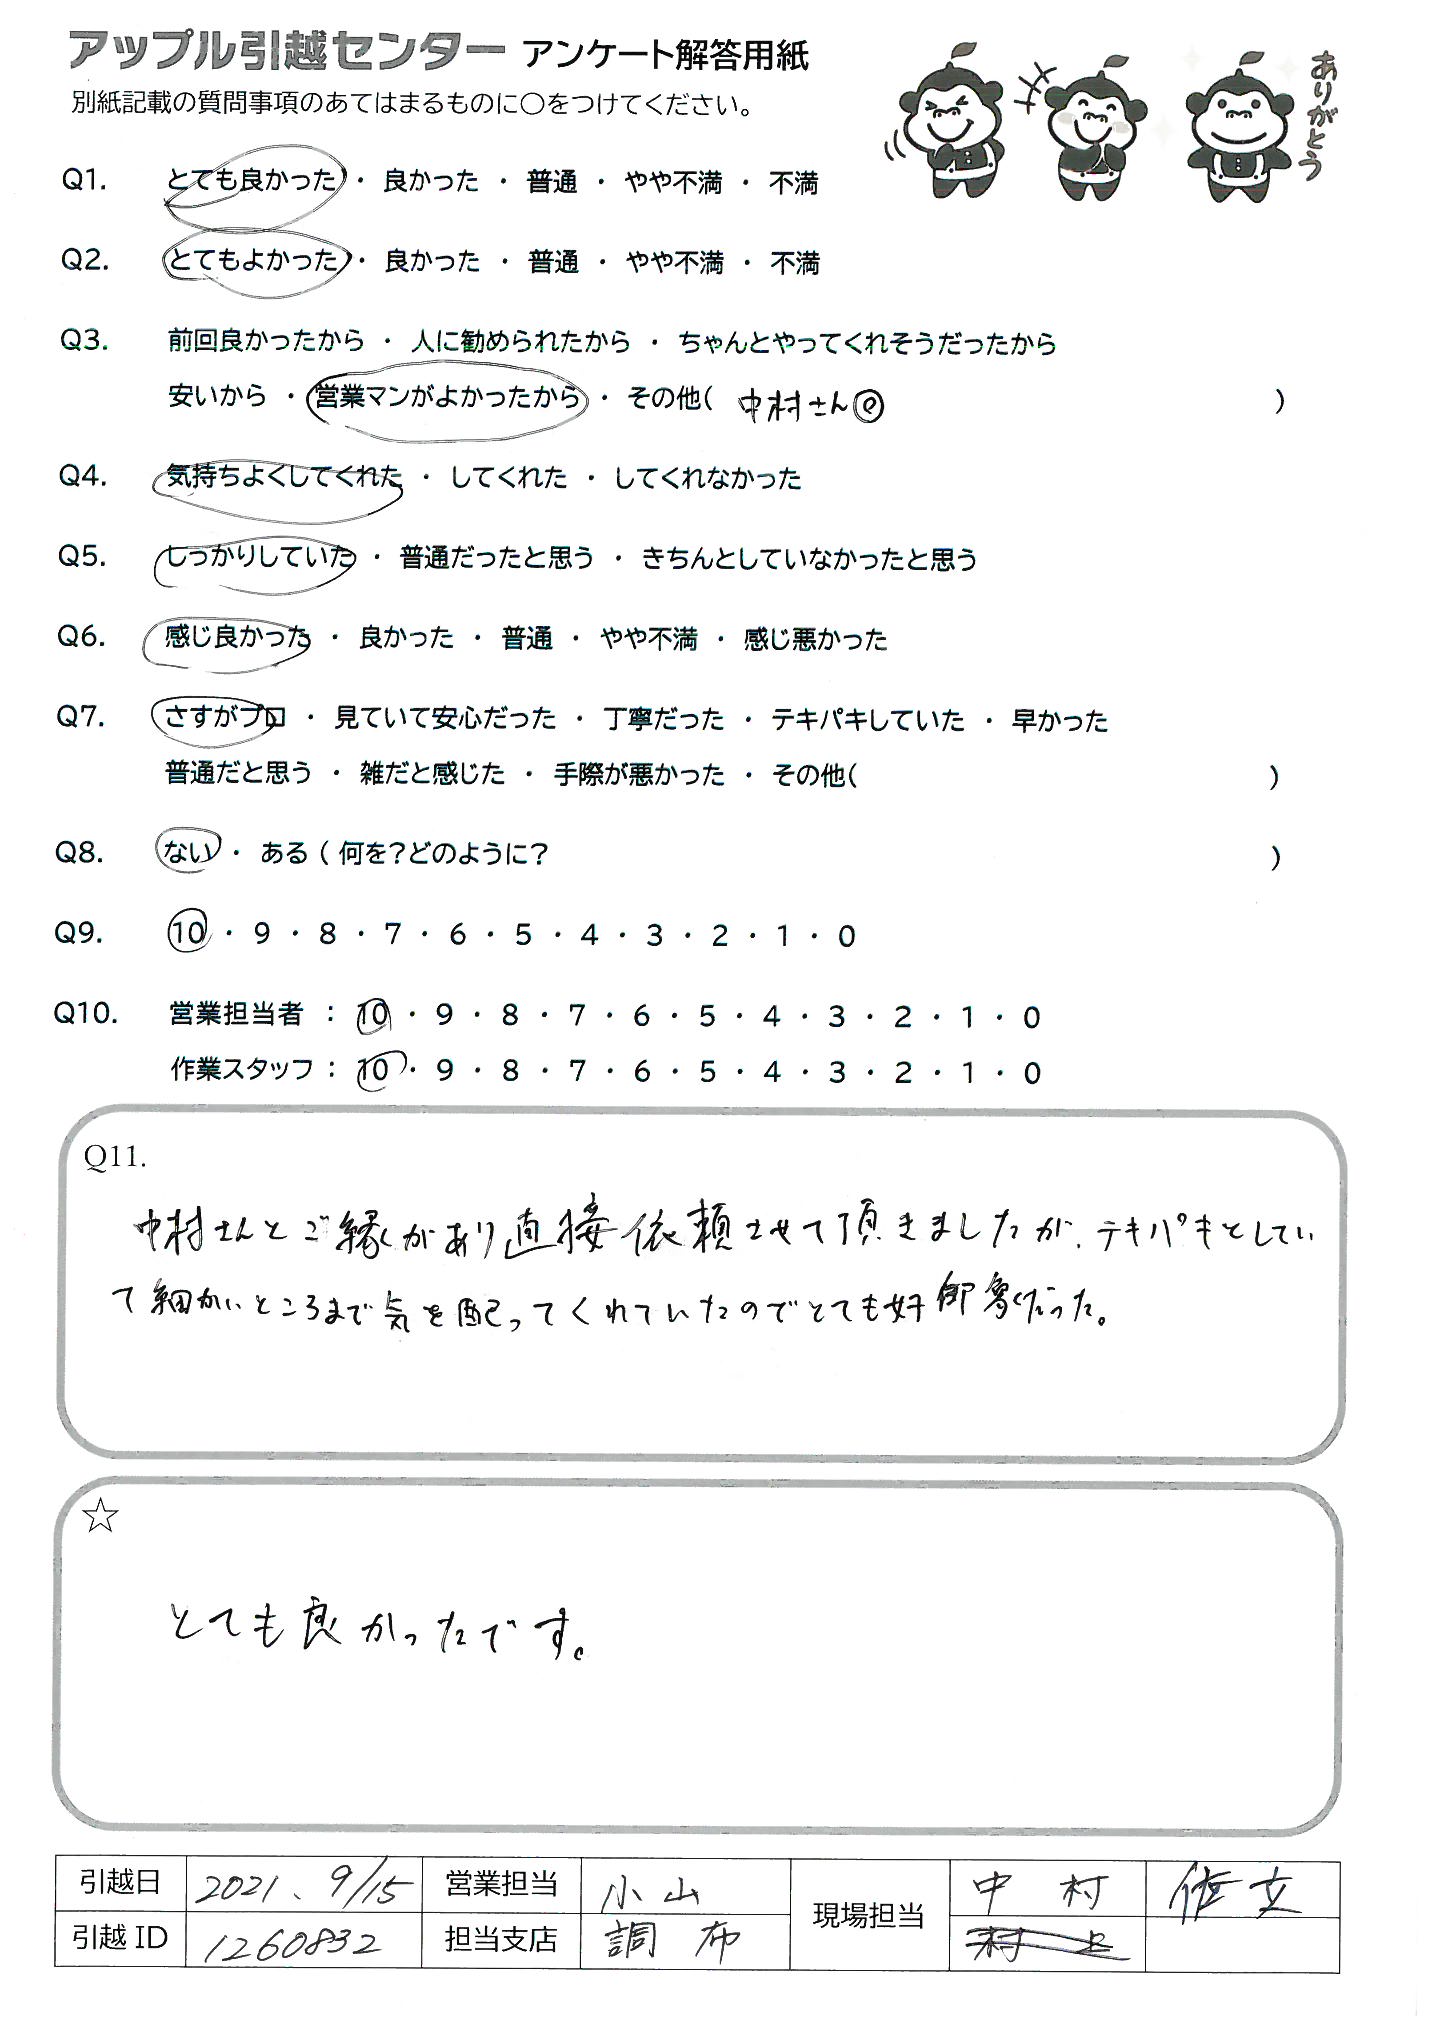 アップル引越センター アンケート解答用紙
別紙記載の質問事項のあてはまるものに○をつけてください。
ありがとう
Q1. とても良かった ・ 良かった ・ 普通 ・ やや不満 ・ 不満
Q2. とてもよかった ・ 良かった ・ 普通 ・ やや不満 ・ 不満
Q3. 前回良かったから ・ 人に勧められたから ・ ちゃんとやってくれそうだったから
安いから ・ 営業マンがよかったから ・ その他( 中村さん )
Q4. 気持ちよくしてくれた ・ してくれた ・ してくれなかった
Q5. しっかりしていた ・ 普通だったと思う ・ きちんとしていなかったと思う
Q6. 感じ良かった ・ 良かった ・ 普通 ・ やや不満 ・ 感じ悪かった
Q7. さすがプロ ・ 見ていて安心だった ・ 丁寧だった ・ テキパキしていた ・ 早かった
普通だと思う ・ 雑だと感じた ・ 手際が悪かった ・ その他( )
Q8. ない ・ ある ( 何を?どのように? )
Q9. 10 ・ 9 ・ 8 ・ 7 ・ 6 ・ 5 ・ 4 ・ 3 ・ 2 ・ 1 ・ 0
Q10. 営業担当者 : 10 ・ 9 ・ 8 ・ 7 ・ 6 ・ 5 ・ 4 ・ 3 ・ 2 ・ 1 ・ 0
作業スタッフ : 10 ・ 9 ・ 8 ・ 7 ・ 6 ・ 5 ・ 4 ・ 3 ・ 2 ・ 1 ・ 0
Q11.
中村さんとご縁があり直接依頼させて頂きましたが、テキパキとしてい
て細かいところまで気を配ってくれていたのでとても好印象だった。
☆
とても良かったです。
引越日 2021. 9/15 営業担当 小山 現場担当 中村
引越ID 1260832 担当支店 調布 村上